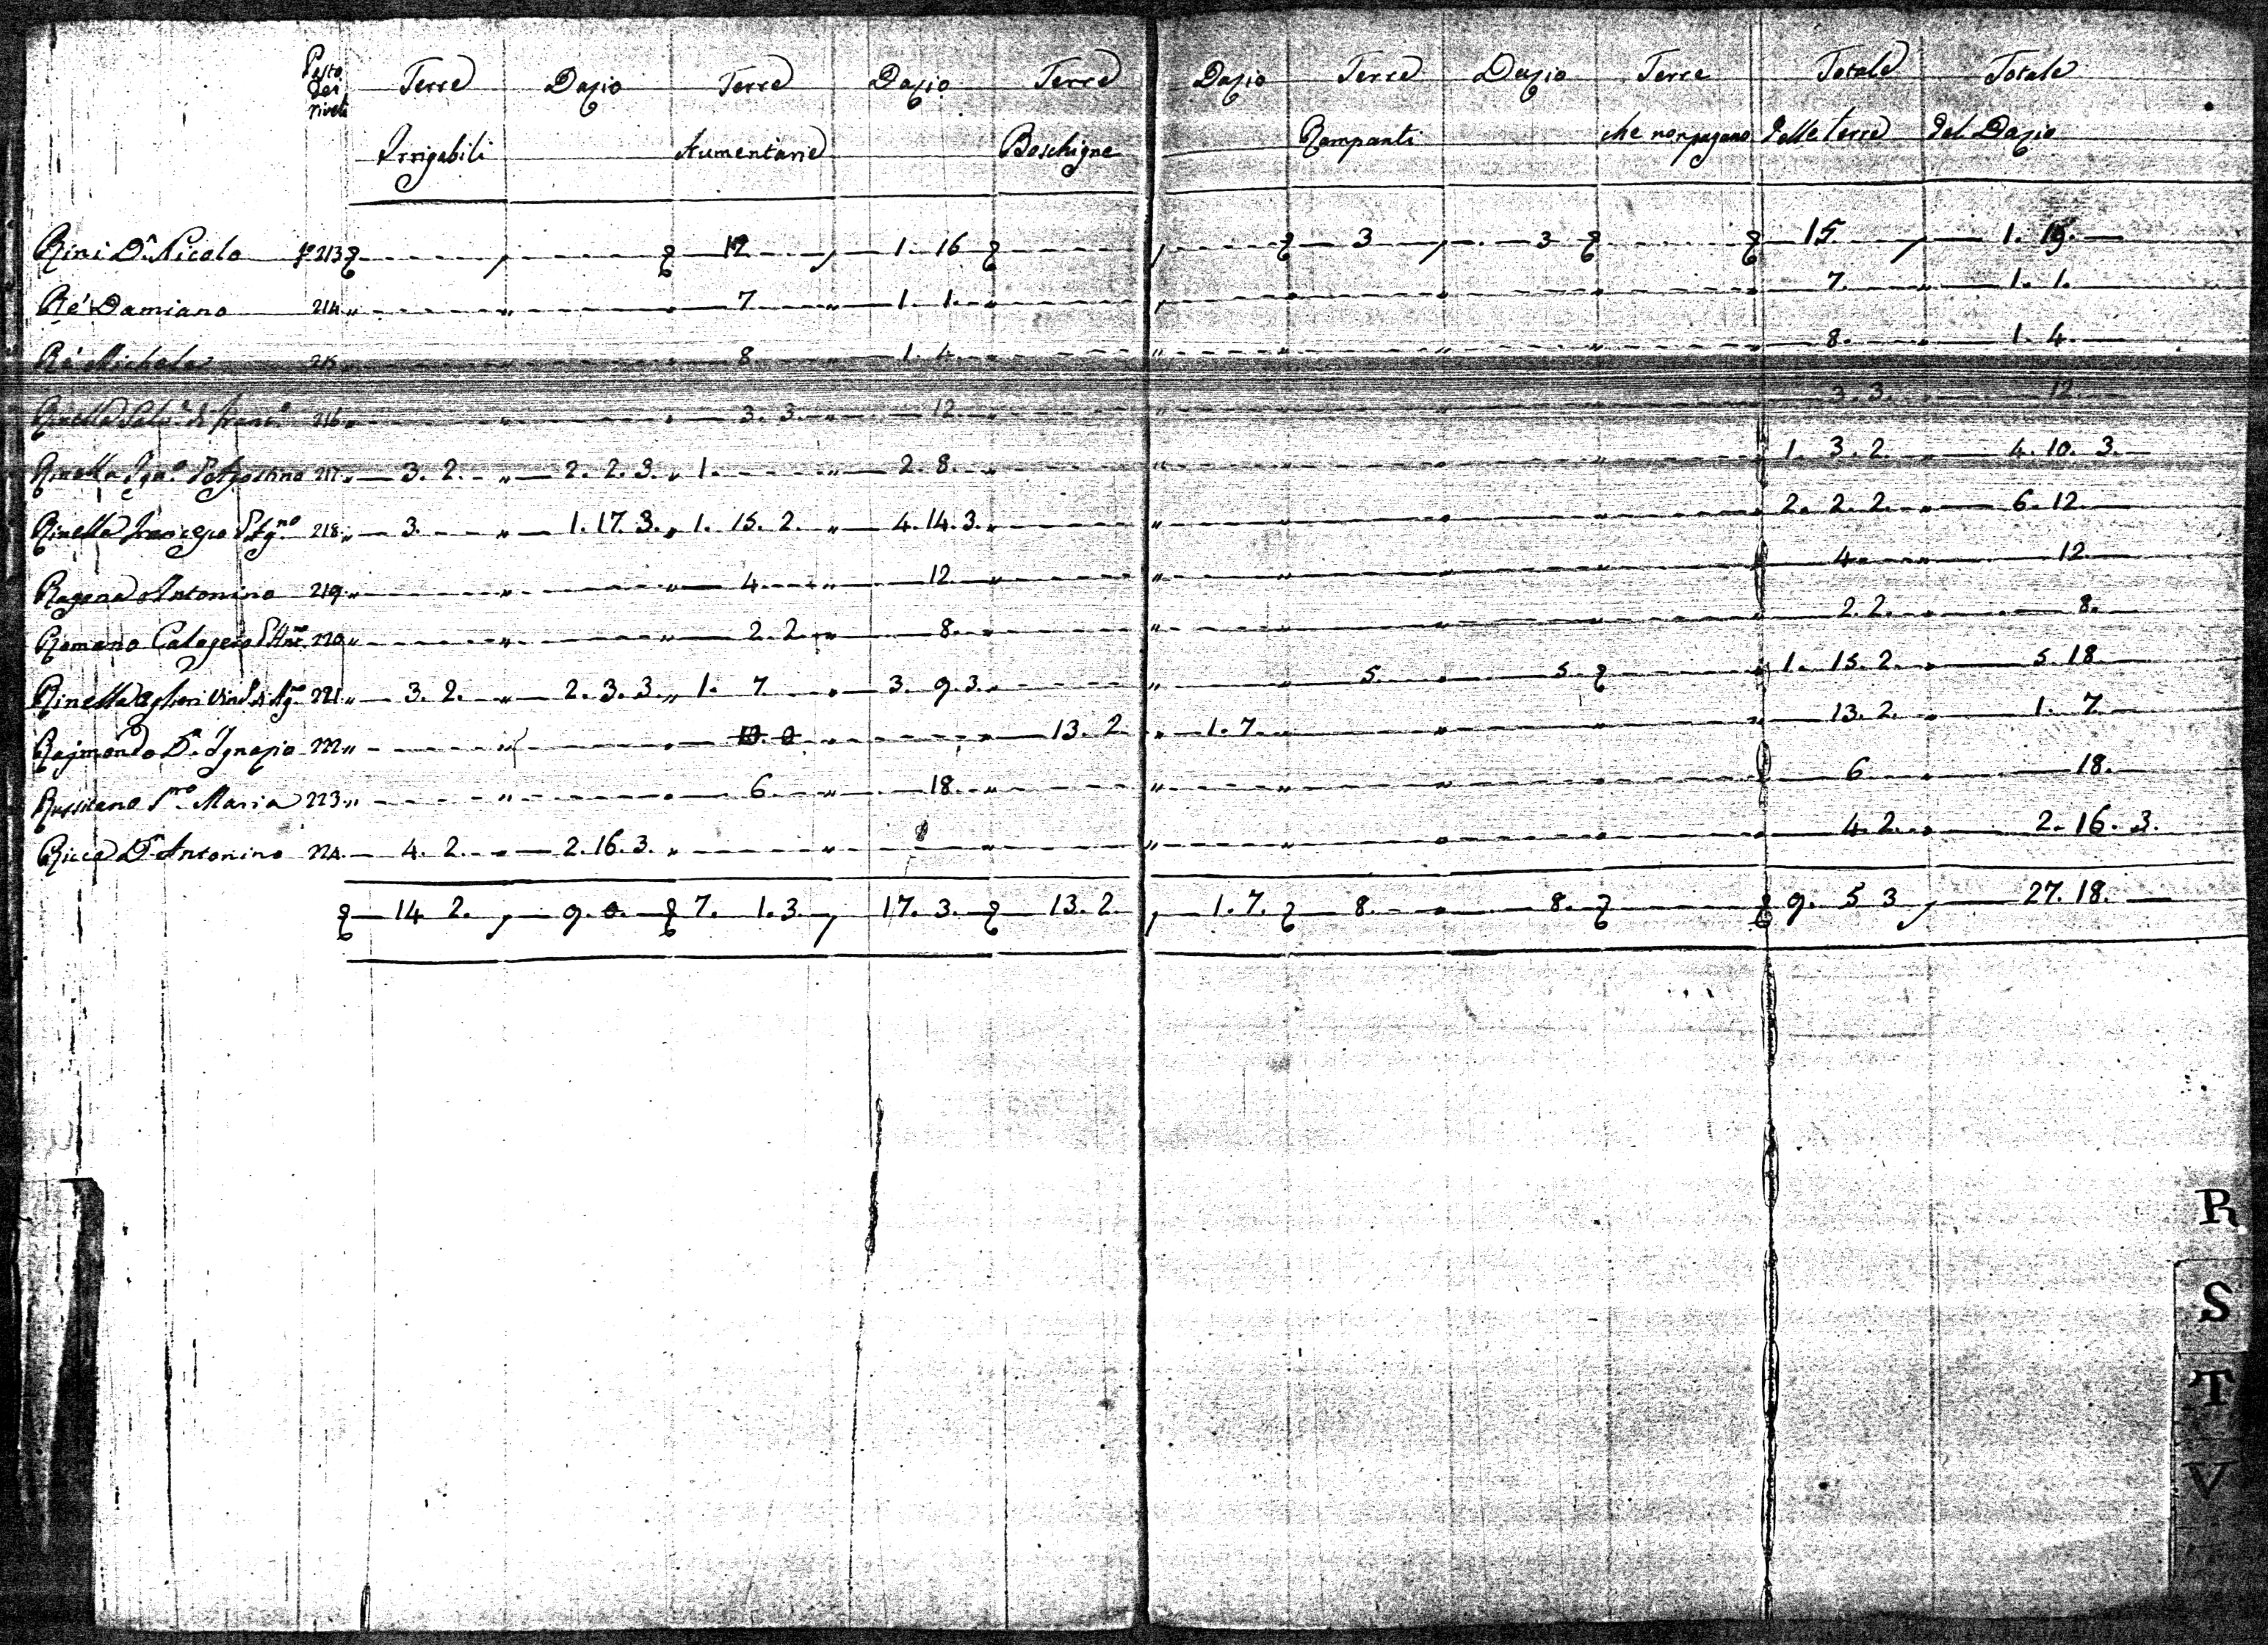 Terre Dazio Terre Dazio Terre Dazio Terre Dazio Terre Totale Totale
Irrigabili Aumentarie Boschigne Rampanti che non pagano delle terre del Dazio
Rini Dn. Nicolo 213 12 1. 16 3 3 15 1. 19.
Re Damiano 214 7 1. 1. 7. 1. 1.
Re Michele 215 8 1. 4 8. 1. 4
Rinella 216 3. 3. 12 3. 3. 12
Rinella 217 3. 2. 2. 2. 3. 1. 2. 8. 1. 3. 2. 4. 10. 3.
Rinella Francesco 218 3. 1. 17. 3. 1. 15. 2. 4. 14. 3. 2. 2. 2. 6. 12
Ragona Antonino 219 4 12 4 12
Romano Calogero 220 2. 2. 8. 2. 2. 8.
Rinella 221 3. 2. 2. 3. 3. 1. 7 3. 9. 3. 5 5. 1. 15. 2. 5. 18
Rajmondo Dn. Ignazio 222 13. 2 1. 7. 13. 2. 1. 7
Maria 223 6 18. 6 18.
Ricca Dn. Antonino 224 4. 2. 2. 16. 3. 4. 2. 2. 16. 3.
14 2. 9. 0. 7. 1. 3. 17. 3. 13. 2. 1. 7. 8. 8. 9. 5 3 27. 18.
R
S
T
V